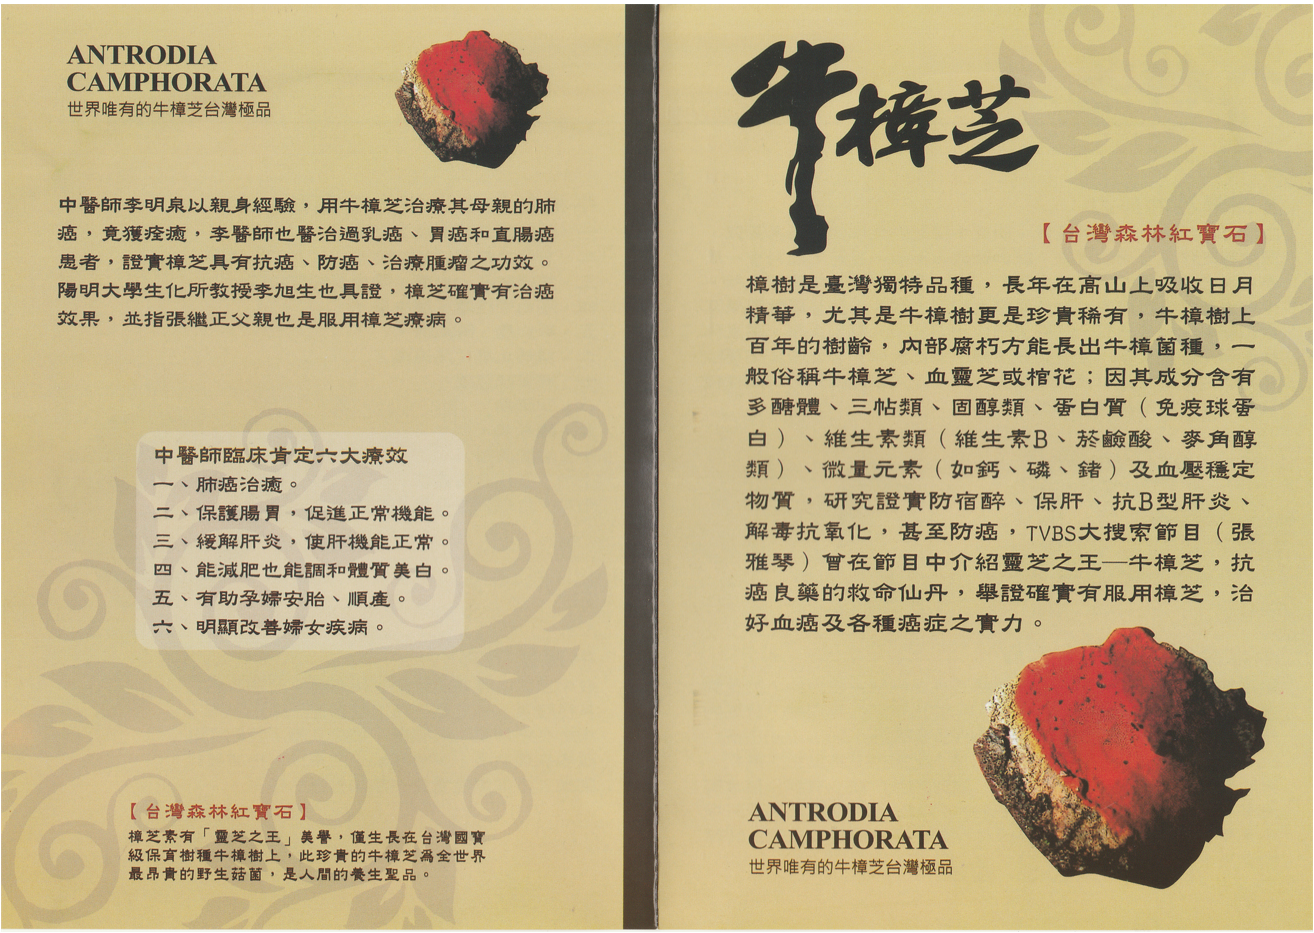 ANTRODIA
CAMPHORATA
世界唯有的牛樟芝台灣極品
中醫師李明泉以親身經驗，用牛樟芝治療其母親的肺
癌，竟獲痊癒，李醫師也醫治過乳癌、胃癌和直腸癌
患者，證實樟芝具有抗癌、防癌、治療腫瘤之功效。
陽明大學生化所教授李旭生也具證，樟芝確實有治癌
效果，並指張繼正父親也是服用樟芝療病。
中醫師臨床肯定六大療效
一、肺癌治癒。
二、保護腸胃，促進正常機能。
三、緩解肝炎，使肝機能正常。
四、能減肥也能調和體質美白。
五、有助孕婦安胎、順產。
六、明顯改善婦女疾病。
【台灣森林紅寶石】
樟芝素有「靈芝之王」美譽，僅生長在台灣國寶
級保育樹種牛樟樹上，此珍貴的牛樟芝為全世界
最昂貴的野生菇菌，是人間的養生聖品。
牛樟芝
【台灣森林紅寶石】
樟樹是臺灣獨特品種，長年在高山上吸收日月
精華，尤其是牛樟樹更是珍貴稀有，牛樟樹上
百年的樹齡，內部腐朽方能長出牛樟菌種，一
般俗稱牛樟芝、血靈芝或棺花；因其成分含有
多醣體、三帖類、固醇類、蛋白質（免疫球蛋
白）、維生素類（維生素B、菸鹼酸、麥角醇
類）、微量元素（如鈣、磷、鍺）及血壓穩定
物質，研究證實防宿醉、保肝、抗B型肝炎、
解毒抗氧化，甚至防癌，TVBS大搜索節目（張
雅琴）曾在節目中介紹靈芝之王—牛樟芝，抗
癌良藥的救命仙丹，舉證確實有服用樟芝，治
好血癌及各種癌症之實力。
ANTRODIA
CAMPHORATA
世界唯有的牛樟芝台灣極品